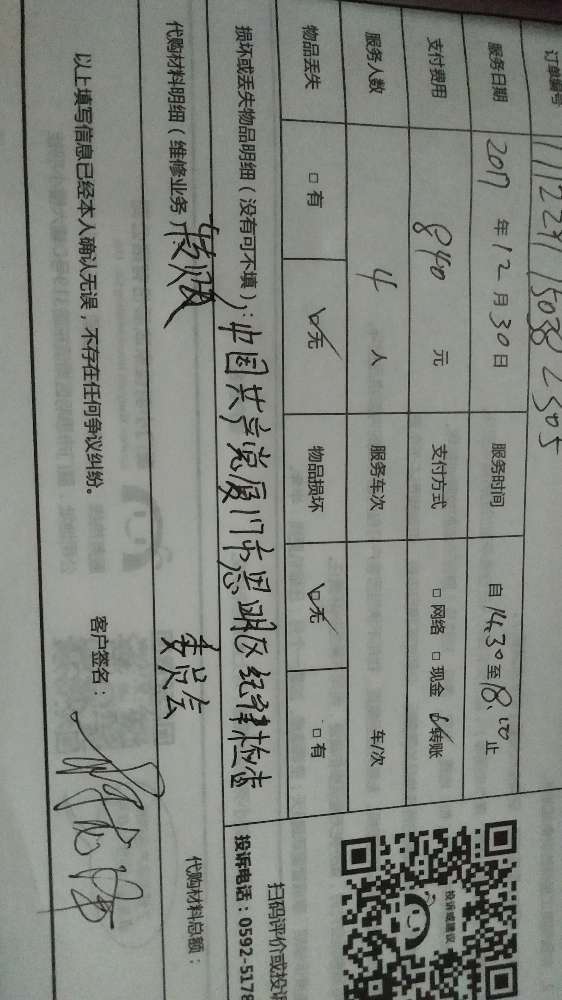 订单编号 17112291150382505
服务日期 2017年12月30日 服务时间 自14:30至18:00止
支付费用 840元 支付方式 □网络 □现金 ☑转账
服务人数 4人 服务车次 车/次
物品丢失 □有 ☑无 物品损坏 ☑无 □有
损坏或丢失物品明细（没有可不填）：中国共产党厦门市思明区纪律检查
委员会
代购材料明细（维修业务） 代购材料总额：
以上填写信息已经本人确认无误，不存在任何争议纠纷。 客户签名：
扫码评价或投诉
投诉电话：0592-5178
投诉或建议